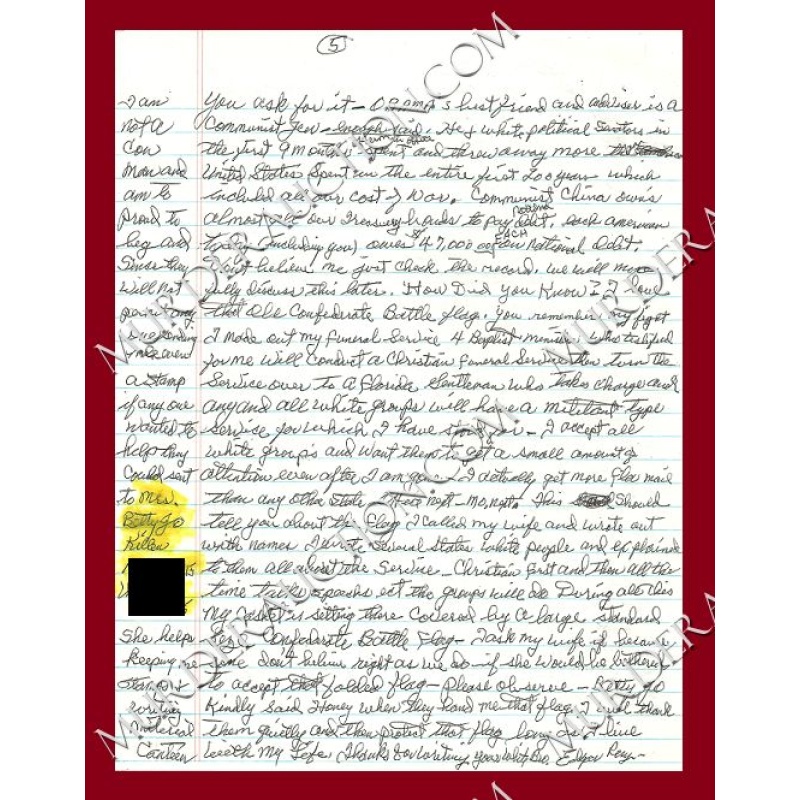 5
You ask for it - O s best friend and adviser is a
Communist Jew - He & white political in
the first 9 months spent and threw away more
United States spent in the entire first 200 years which
included all our cost of War. Communist China owns
almost all our Treasury to pay debt, each american
today (including you) owes $47,000 EACH on National Debt.
don't believe me just check the record. we will more
fully discuss this later. How Did you Know I Love
that Old Confederate Battle flag. You remember my fight
I made out my funeral Service 4 Baptist who testified
for me will Conduct a Christian funeral Service then turn the
Service over to a Florida Gentleman who takes charge and
any and all white groups will have a militant type
service for which I have - I accept all
white groups and want them to get a small amount of
attention even after I am gone - I actually get more Fla mail
than any other state next - Mo, next. This should
tell you about the flag I called my wife and wrote out
with names I want several states white people and explained
to them all about the Service - Christian first and then all the
time talks speaks ect the groups will do During all this
My is setting there Covered by a large standard
size Confederate Battle Flag - I ask my wife if because
some don't believe right as we do if she would be bothered
to accept that folded flag - Please observe - Betty Jo
Kindly said Honey when they hand me that flag I will thank
them quietly and then protect that flag long as I live
with My Life. Thanks for writing your White Bro. Edgar Ray -
I am
not a
Con
Man and
am to
proud to
beg and
Since they
will not
pay any
me even
a stamp
if any one
wanted to
help they
Could sent
to Mrs.
Betty Jo
Killen
She helps
keeping me
stamps
writing
material
Canteen
MURDERAUCTION.COM
MURDERAUCTION.COM
MURDERAUCTION.COM
MURDERAUCTION.COM